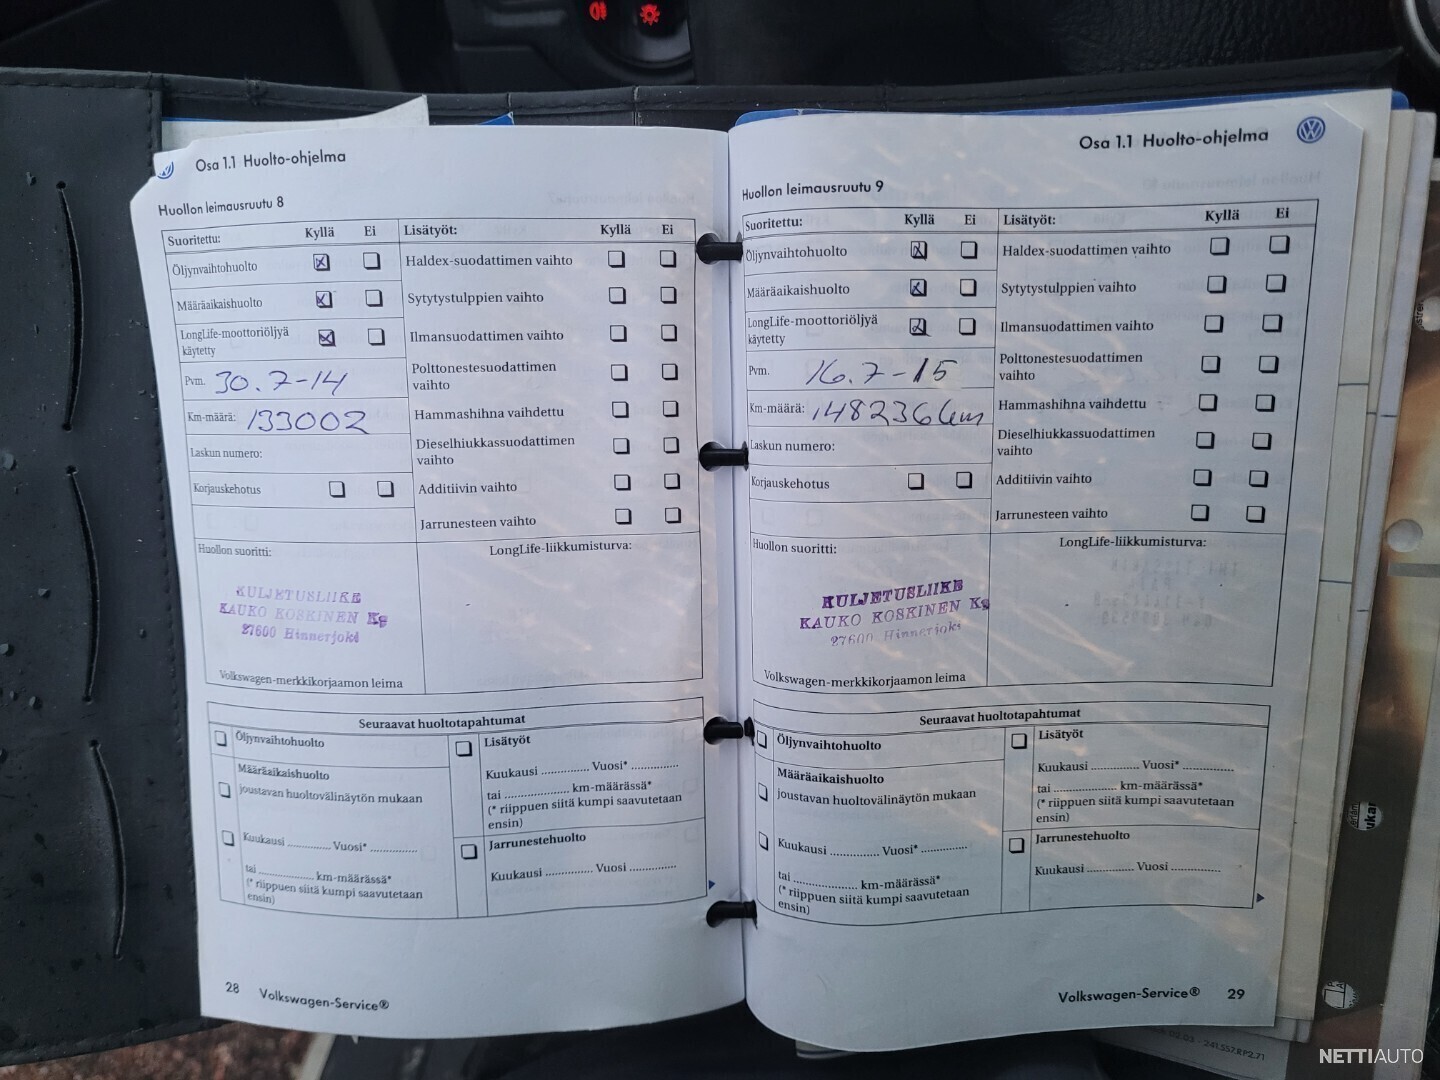 Osa 1.1 Huolto-ohjelma
Huollon leimausruutu 8
Suoritettu: Kyllä Ei Lisätyöt: Kyllä Ei
Öljynvaihtohuolto Haldex-suodattimen vaihto
Määräaikaishuolto Sytytystulppien vaihto
LongLife-moottoriöljyä käytetty Ilmansuodattimen vaihto
Pvm. 30.7-14 Polttonestesuodattimen vaihto
Km-määrä: 133002 Hammashihna vaihdettu
Laskun numero: Dieselhiukkassuodattimen vaihto
Korjauskehotus Additiivin vaihto
Jarrunesteen vaihto
Huollon suoritti: LongLife-liikkumisturva:
KULJETUSLIIKE
KAUKO KOSKINEN Ky
27600 Hinnerjoki
Volkswagen-merkkikorjaamon leima
Seuraavat huoltotapahtumat
Öljynvaihtohuolto
Määräaikaishuolto
joustavan huoltovälinäytön mukaan
Kuukausi .............. Vuosi* ..............
tai .................. km-määrässä*
(* riippuen siitä kumpi saavutetaan
ensin)
Lisätyöt
Kuukausi .............. Vuosi* ..............
tai .................. km-määrässä*
(* riippuen siitä kumpi saavutetaan
ensin)
Jarrunestehuolto
Kuukausi .............. Vuosi ..............
28 Volkswagen-Service®
Osa 1.1 Huolto-ohjelma
Huollon leimausruutu 9
Suoritettu: Kyllä Ei Lisätyöt: Kyllä Ei
Öljynvaihtohuolto Haldex-suodattimen vaihto
Määräaikaishuolto Sytytystulppien vaihto
LongLife-moottoriöljyä käytetty Ilmansuodattimen vaihto
Pvm. 16.7-15 Polttonestesuodattimen vaihto
Km-määrä: 148236 km Hammashihna vaihdettu
Laskun numero: Dieselhiukkassuodattimen vaihto
Korjauskehotus Additiivin vaihto
Jarrunesteen vaihto
Huollon suoritti: LongLife-liikkumisturva:
KULJETUSLIIKE
KAUKO KOSKINEN Ky
27600 Hinnerjoki
Volkswagen-merkkikorjaamon leima
Seuraavat huoltotapahtumat
Öljynvaihtohuolto
Määräaikaishuolto
joustavan huoltovälinäytön mukaan
Kuukausi .............. Vuosi* ..............
tai .................. km-määrässä*
(* riippuen siitä kumpi saavutetaan
ensin)
Lisätyöt
Kuukausi .............. Vuosi* ..............
tai .................. km-määrässä*
(* riippuen siitä kumpi saavutetaan
ensin)
Jarrunestehuolto
Kuukausi .............. Vuosi ..............
Volkswagen-Service® 29
NETTIAUTO